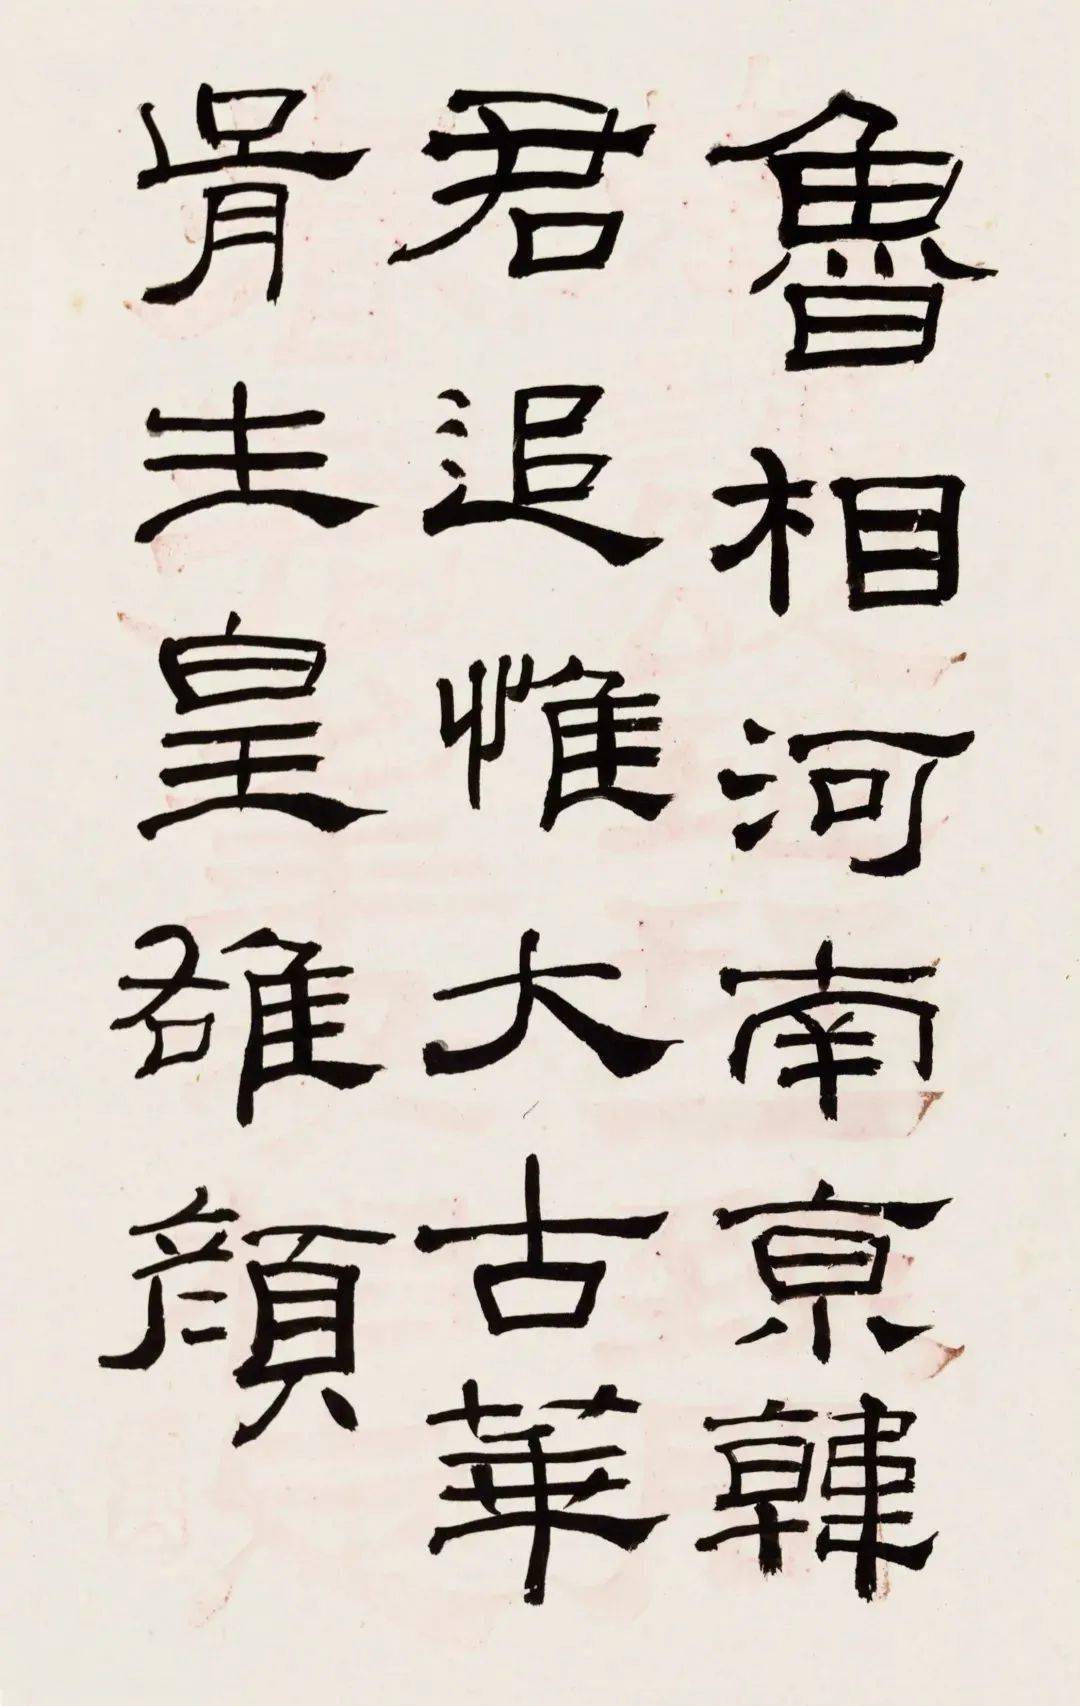 魯相河南京韓
君追惟大古華
胥生皇雄顏